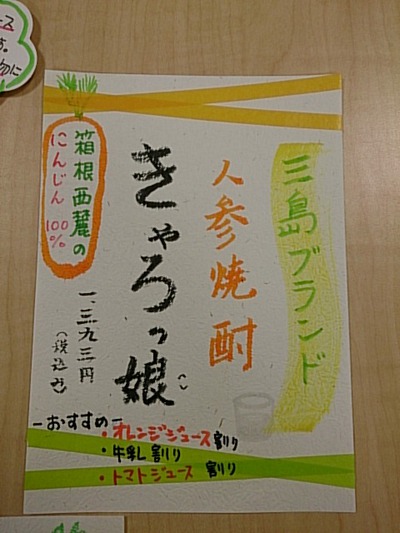 三島ブランド
人参焼酎
きゃろっ娘
箱根西麓の
にんじん100%
一、三九三円
(税込み)
ーおすすめー
・オレンジジュース割り
・牛乳割り
・トマトジュース 割り